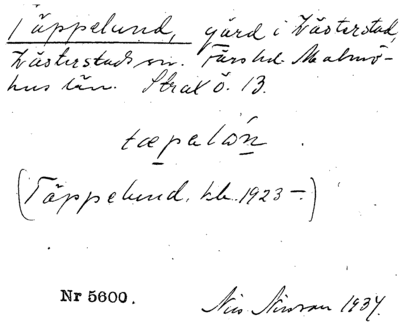 Täppelund, gård i Västerstad,
Västerstads sn. Färs hd. Malmö-
hus län. Strax ö. 13.
tæpelón.
(Täppelund. kb. 1923 –.)
Nr 5600.
Nils 1934.